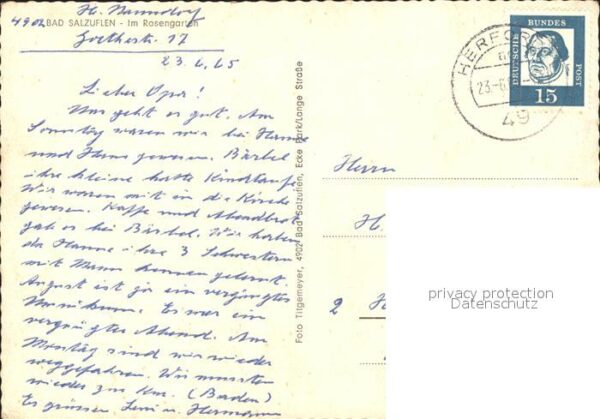 H. Nanndorf
4902 BAD SALZUFLEN - Im Rosengarten
Goethestr. 17
23.6.65
Lieber Opa!
Uns geht es gut. Am
Sonntag waren wir bei Hanna
und Hans gewesen. Bärbel
ihre kleine hatte Kindtaufe
Wir waren mit in die Kirche
gewesen. Kaffe und Abendbrot
gab es bei Bärbel. Wir haben
da Hanne ihre 3 Schwestern
mit Mann kennen gelernt.
August ist ja ein vergnügtes
Es war ein
vergnügter Abend. Am
Montag sind wir wieder
weggefahren. Wir mussten
wieder zur Kur. (Baden)
Es grüssen Leni u. Hermann
Foto Tilgemeyer, 4902 Bad Salzuflen, Ecke Park/Lange Straße
HERFOR
23.-6.
49
DEUTSCHE
BUNDES
POST
15
Herrn
H.
2 H
privacy protection
Datenschutz